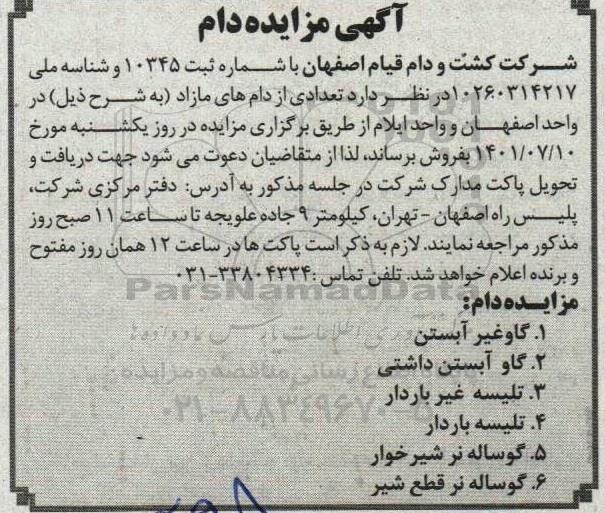 آگهی مزایده دام
شرکت کشت و دام قیام اصفهان با شماره ثبت ۱۰۳۴۵ و شناسه ملی
۱۰۲۶۰۳۱۴۲۱۷ در نظر دارد تعدادی از دام های مازاد (به شرح ذیل) در
واحد اصفهان و واحد ایلام از طریق برگزاری مزایده در روز یکشنبه مورخ
۱۴۰۱/۰۷/۱۰ بفروش برساند، لذا از متقاضیان دعوت می شود جهت دریافت و
تحویل پاکت مدارک شرکت در جلسه مذکور به آدرس: دفتر مرکزی شرکت،
پلیس راه اصفهان - تهران، کیلومتر ۹ جاده علویجه تا ساعت ۱۱ صبح روز
مذکور مراجعه نمایند. لازم به ذکر است پاکت ها در ساعت ۱۲ همان روز مفتوح
و برنده اعلام خواهد شد. تلفن تماس: ۳۳۸۰۴۳۳۴-۰۳۱
ParsNamadData
مزایده دام:
۱. گاو غیر آبستن
۲. گاو آبستن داشتی
۳. تلیسه غیر باردار
۴. تلیسه باردار
۵. گوساله نر شیرخوار
۶. گوساله نر قطع شیر